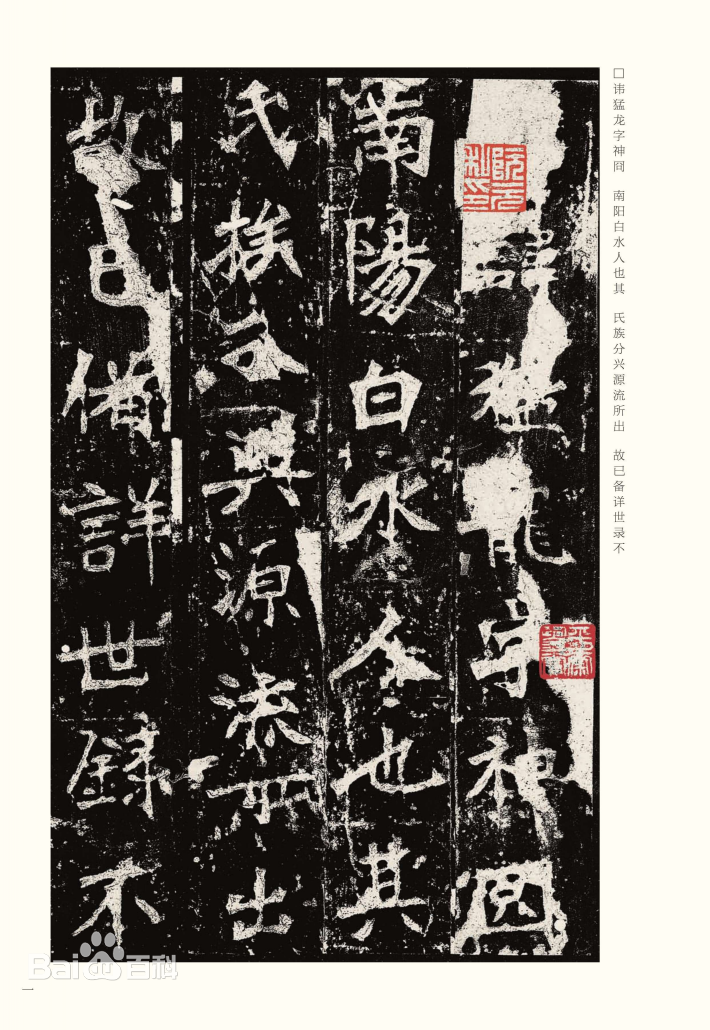 □讳猛龙字神冏 南阳白水人也其 氏族分兴源流所出 故已备详世录不
諱猛龍字神冏
南陽白水人也其
氏族分興源流所出
故已備詳世錄不
阮元私印
Bai百科
一